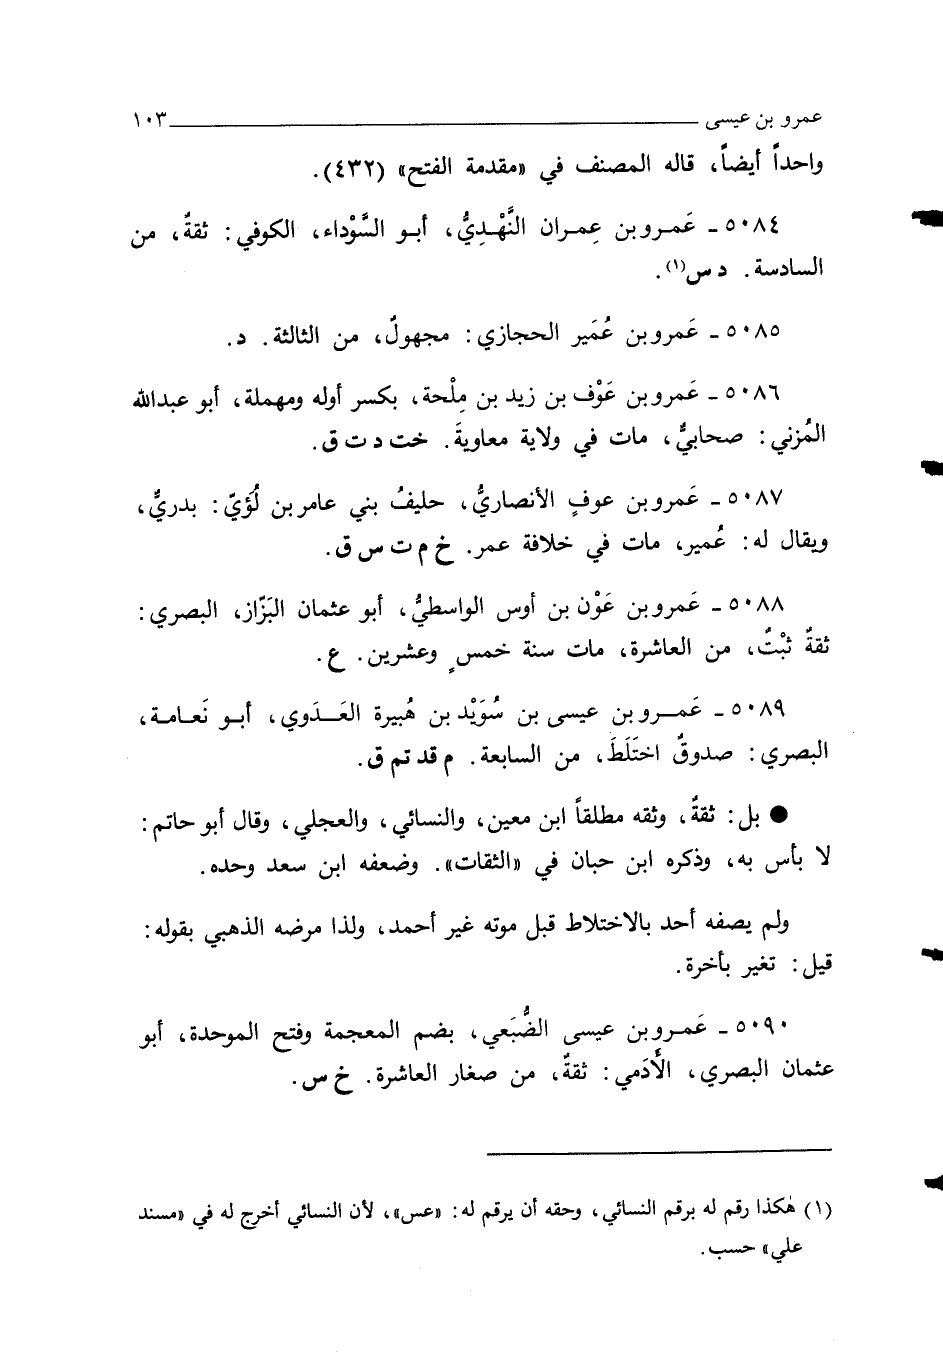 عمرو بن عيسى ــــــــــــــــــــ ١٠٣
واحداً أيضاً، قاله المصنف في «مقدمة الفتح» (٤٣٢).
٥٠٨٤ ـ عَمـرو بن عِمـران النَّهْـدِيُّ، أبـو السَّوْداء، الكوفي: ثقةٌ، من
السادسة. د س(١).
٥٠٨٥ ـ عَمرو بن عُمَير الحجازي: مجهولٌ، من الثالثة. د.
٥٠٨٦ ـ عَمرو بن عَوْف بن زيد بن مِلْحة، بكسر أوله ومهملة، أبو عبدالله
المُزني: صحابيٌّ، مات في ولاية معاويةَ. خت د ت ق.
٥٠٨٧ ـ عَمرو بن عوفٍ الأنصاريُّ، حليفُ بني عامر بن لُؤيّ: بدريٌّ،
ويقال له: عُمير، مات في خلافة عمر. خ م ت س ق.
٥٠٨٨ ـ عَمرو بن عَوْن بن أوس الواسطيُّ، أبو عثمان البَزّاز، البصري:
ثقةٌ ثبْتٌ، من العاشرة، مات سنة خمسٍ وعشرين. ع.
٥٠٨٩ ـ عَمـــرو بن عيسى بن سُوَيْد بن هُبيرة العَــدَوي، أبـو نَعـامـة،
البصري: صدوقٌ اختَلَطَ، من السابعة. م قد تم ق.
● بل: ثقةٌ، وثقه مطلقاً ابن معين، والنسائي، والعجلي، وقال أبو حاتم:
لا بأس به، وذكره ابن حبان في «الثقات». وضعفه ابن سعد وحده.
ولم يصفه أحد بالاختلاط قبل موته غير أحمد، ولذا مرضه الذهبي بقوله:
قيل: تغير بأخرة.
٥٠٩٠ ـ عَمـرو بن عيسى الضُّبَعي، بضم المعجمة وفتح الموحدة، أبو
عثمان البصري، الأَدَمي: ثقةٌ، من صغار العاشرة. خ س.
(١) هٰكذا رقم له برقم النسائي، وحقه أن يرقم له: «عس»، لأن النسائي أخرج له في «مسند
علي» حسب.